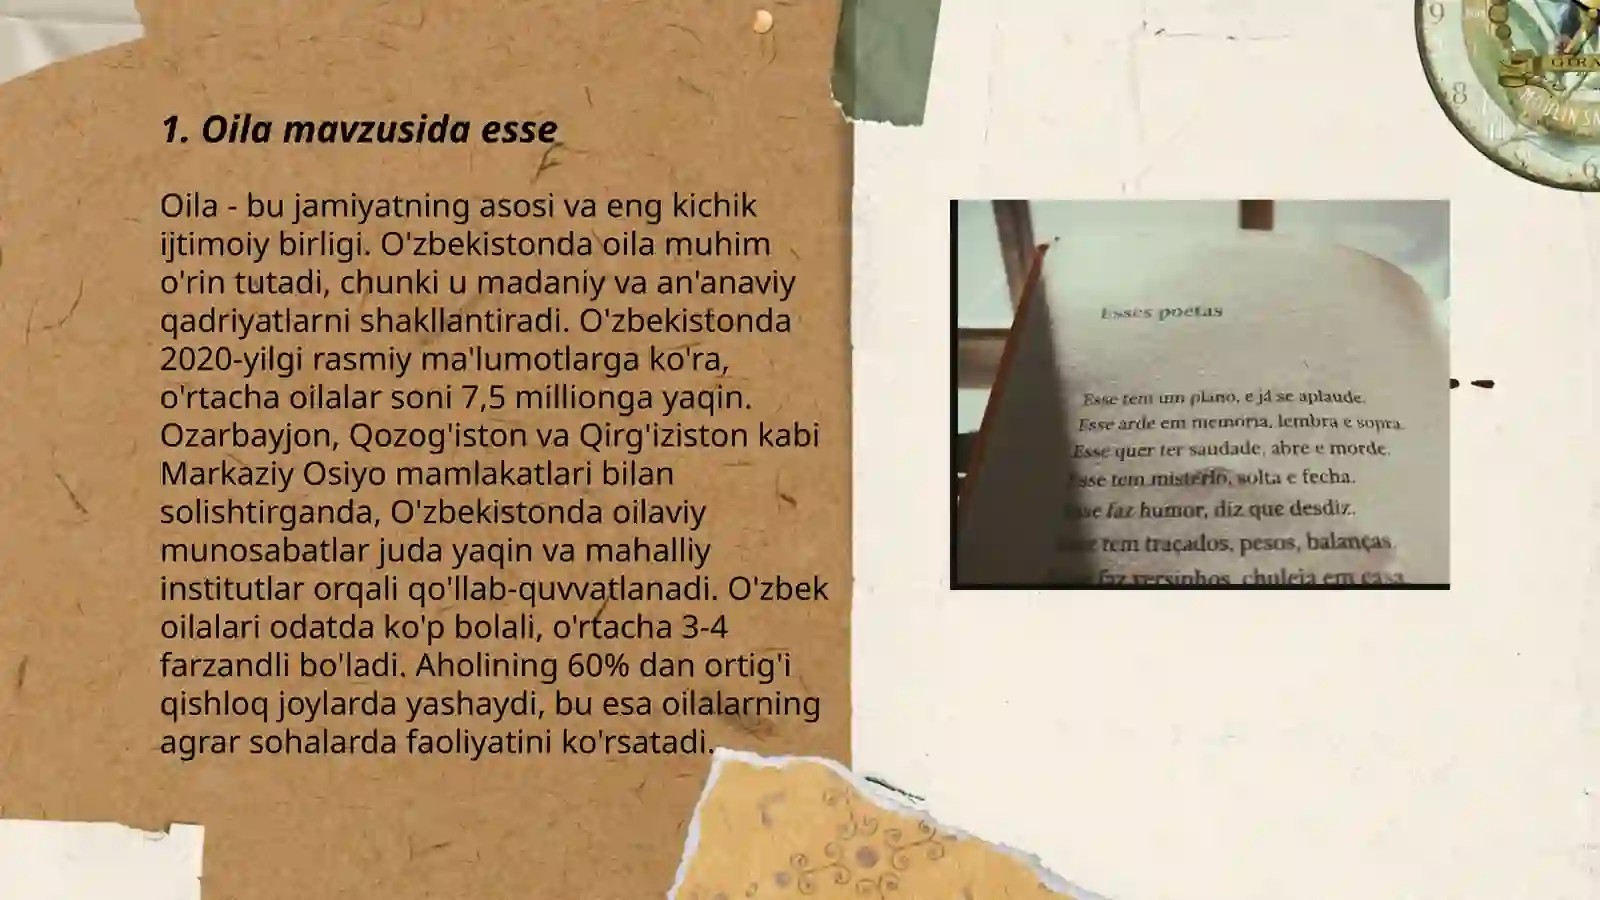 1. Oila mavzusida esse
Oila - bu jamiyatning asosi va eng kichik
ijtimoiy birligi. O'zbekistonda oila muhim
o'rin tutadi, chunki u madaniy va an'anaviy
qadriyatlarni shakllantiradi. O'zbekistonda
2020-yilgi rasmiy ma'lumotlarga ko'ra,
o'rtacha oilalar soni 7,5 millionga yaqin.
Ozarbayjon, Qozog'iston va Qirg'iziston kabi
Markaziy Osiyo mamlakatlari bilan
solishtirganda, O'zbekistonda oilaviy
munosabatlar juda yaqin va mahalliy
institutlar orqali qo'llab-quvvatlanadi. O'zbek
oilalari odatda ko'p bolali, o'rtacha 3-4
farzandli bo'ladi. Aholining 60% dan ortig'i
qishloq joylarda yashaydi, bu esa oilalarning
agrar sohalarda faoliyatini ko'rsatadi.
9
8
6
MOULIN
Esses poetas
Esse tem um plano, e já se aplaude.
Esse arde em memória, lembra e sopra.
Esse quer ter saudade, abre e morde.
Esse tem mistério, solta e fecha.
Esse faz humor, diz que desdiz.
tem traçados, pesos, balanças.
faz versinhos, chuleia em casa.